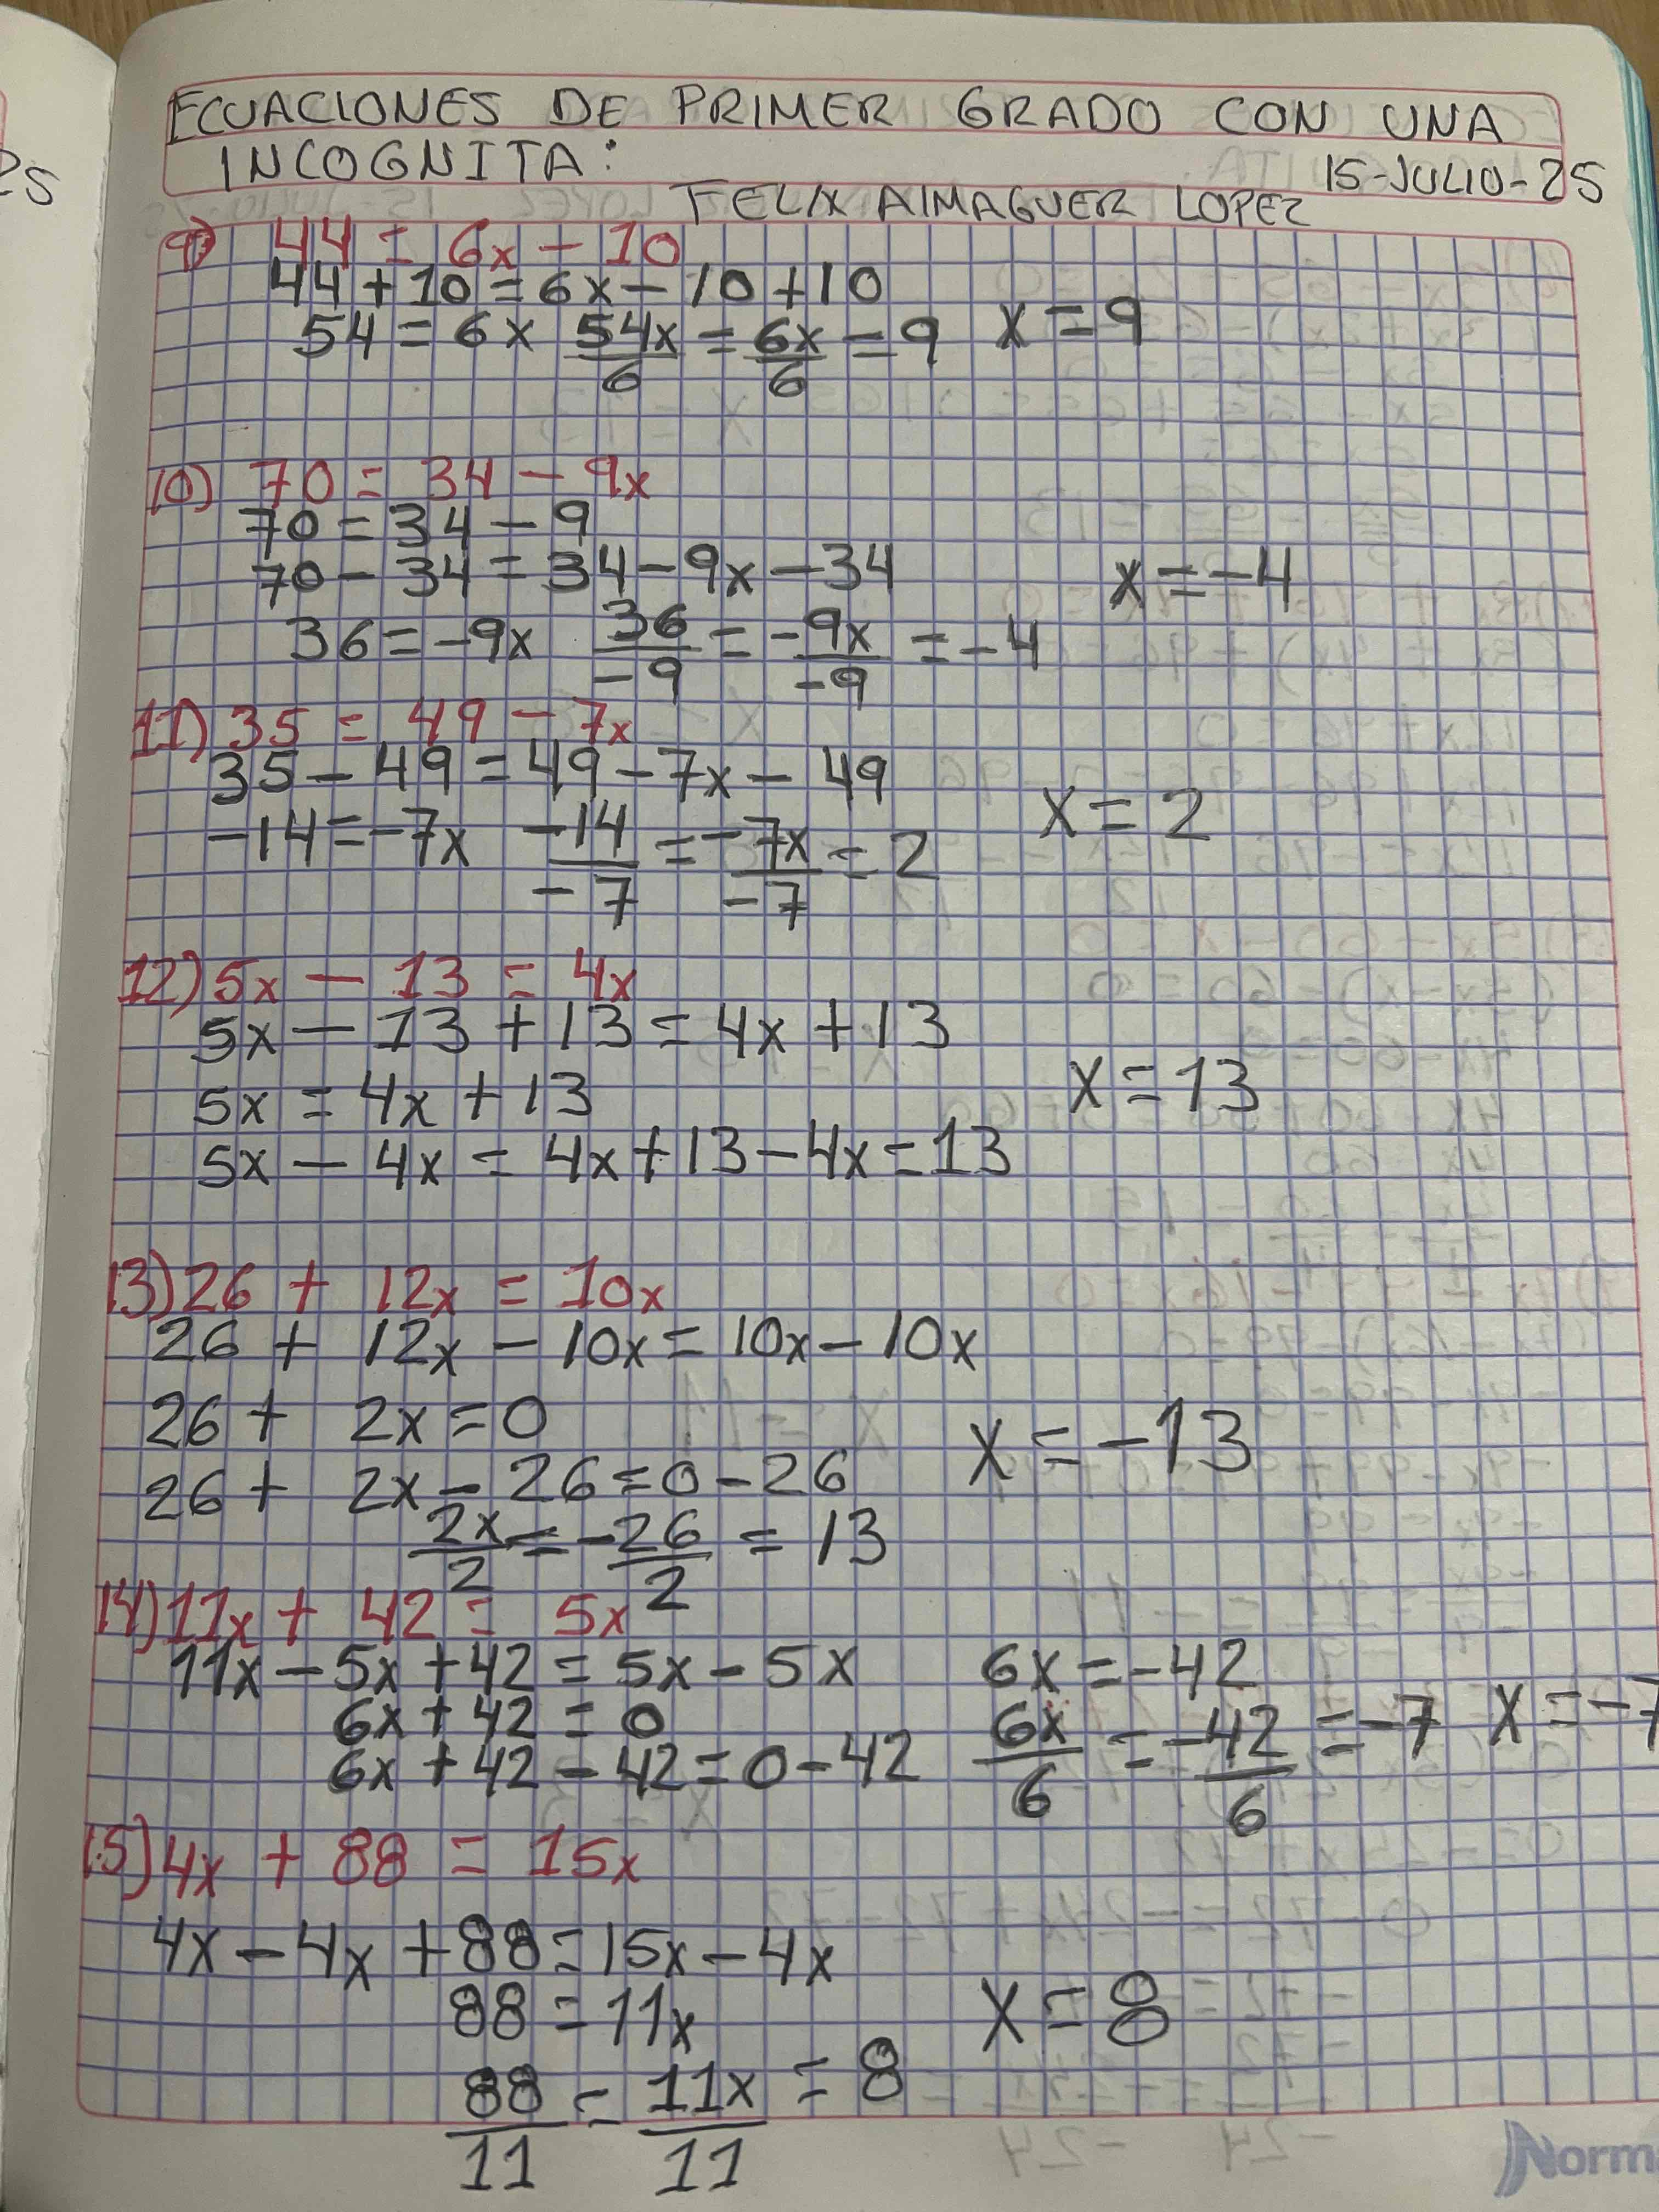 ECUACIONES DE PRIMER GRADO CON UNA
INCOGNITA: 15-JULIO-25
FELIX AlMAGUER LOPEZ
9) 44 = 6x - 10
44+10=6x-10+10
54=6x 54x/6 = 6x/6 =9 x=9
10) 70 = 34 - 9x
70=34-9
70-34=34-9x-34 x=-4
36=-9x 36/-9 = -9x/-9 =-4
11) 35 = 49 - 7x
35-49=49-7x-49
-14=-7x -14/-7 = -7x/-7 =2 x=2
12) 5x - 13 = 4x
5x-13+13=4x+13
5x=4x+13 x=13
5x-4x=4x+13-4x=13
13) 26 + 12x = 10x
26+12x-10x=10x-10x
26+2x=0 x=-13
26+2x-26=0-26
2x/2 = -26/2 = 13
14) 11x + 42 = 5x
11x-5x+42=5x-5x 6x=-42
6x+42=0 6x/6 = -42/6 =-7 x=-7
6x+42-42=0-42
15) 4x + 88 = 15x
4x-4x+88=15x-4x
88=11x x=8
88/11 = 11x/11 = 8
Norm